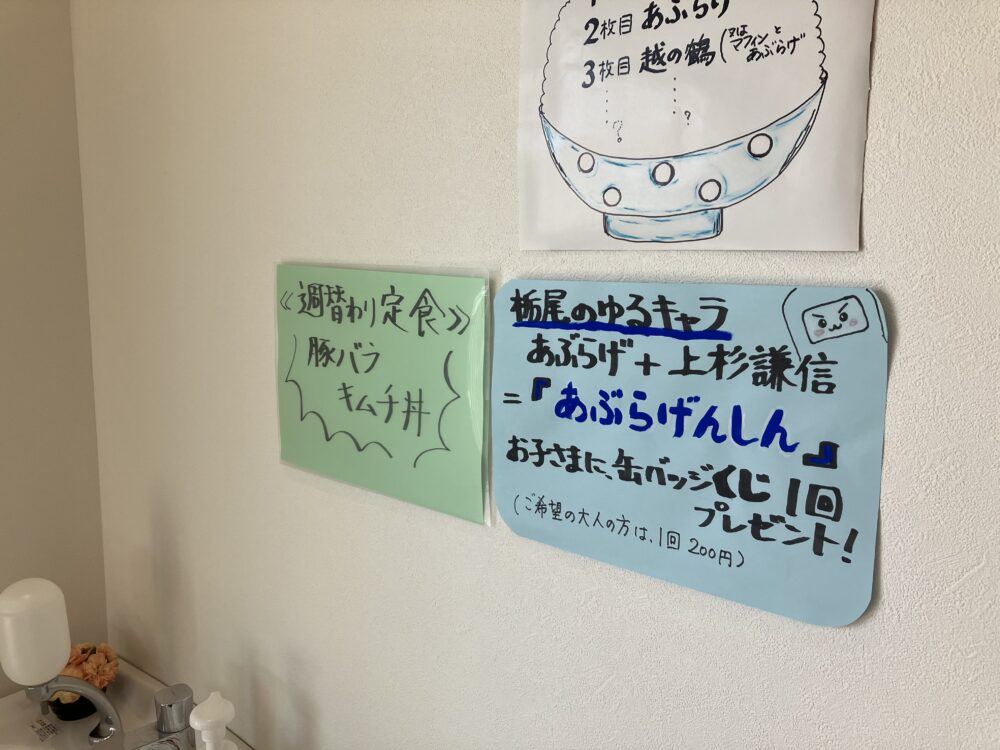 2枚目 あぶらげ
3枚目 越の鶴(又はマフィンとあぶらげ
?
?
《週替わり定食》
豚バラ
キムチ丼
栃尾のゆるキャラ
あぶらげ+上杉謙信
=『あぶらげんしん』
お子さまに、缶バッジくじ1回
プレゼント!
(ご希望の大人の方は、1回 200円)